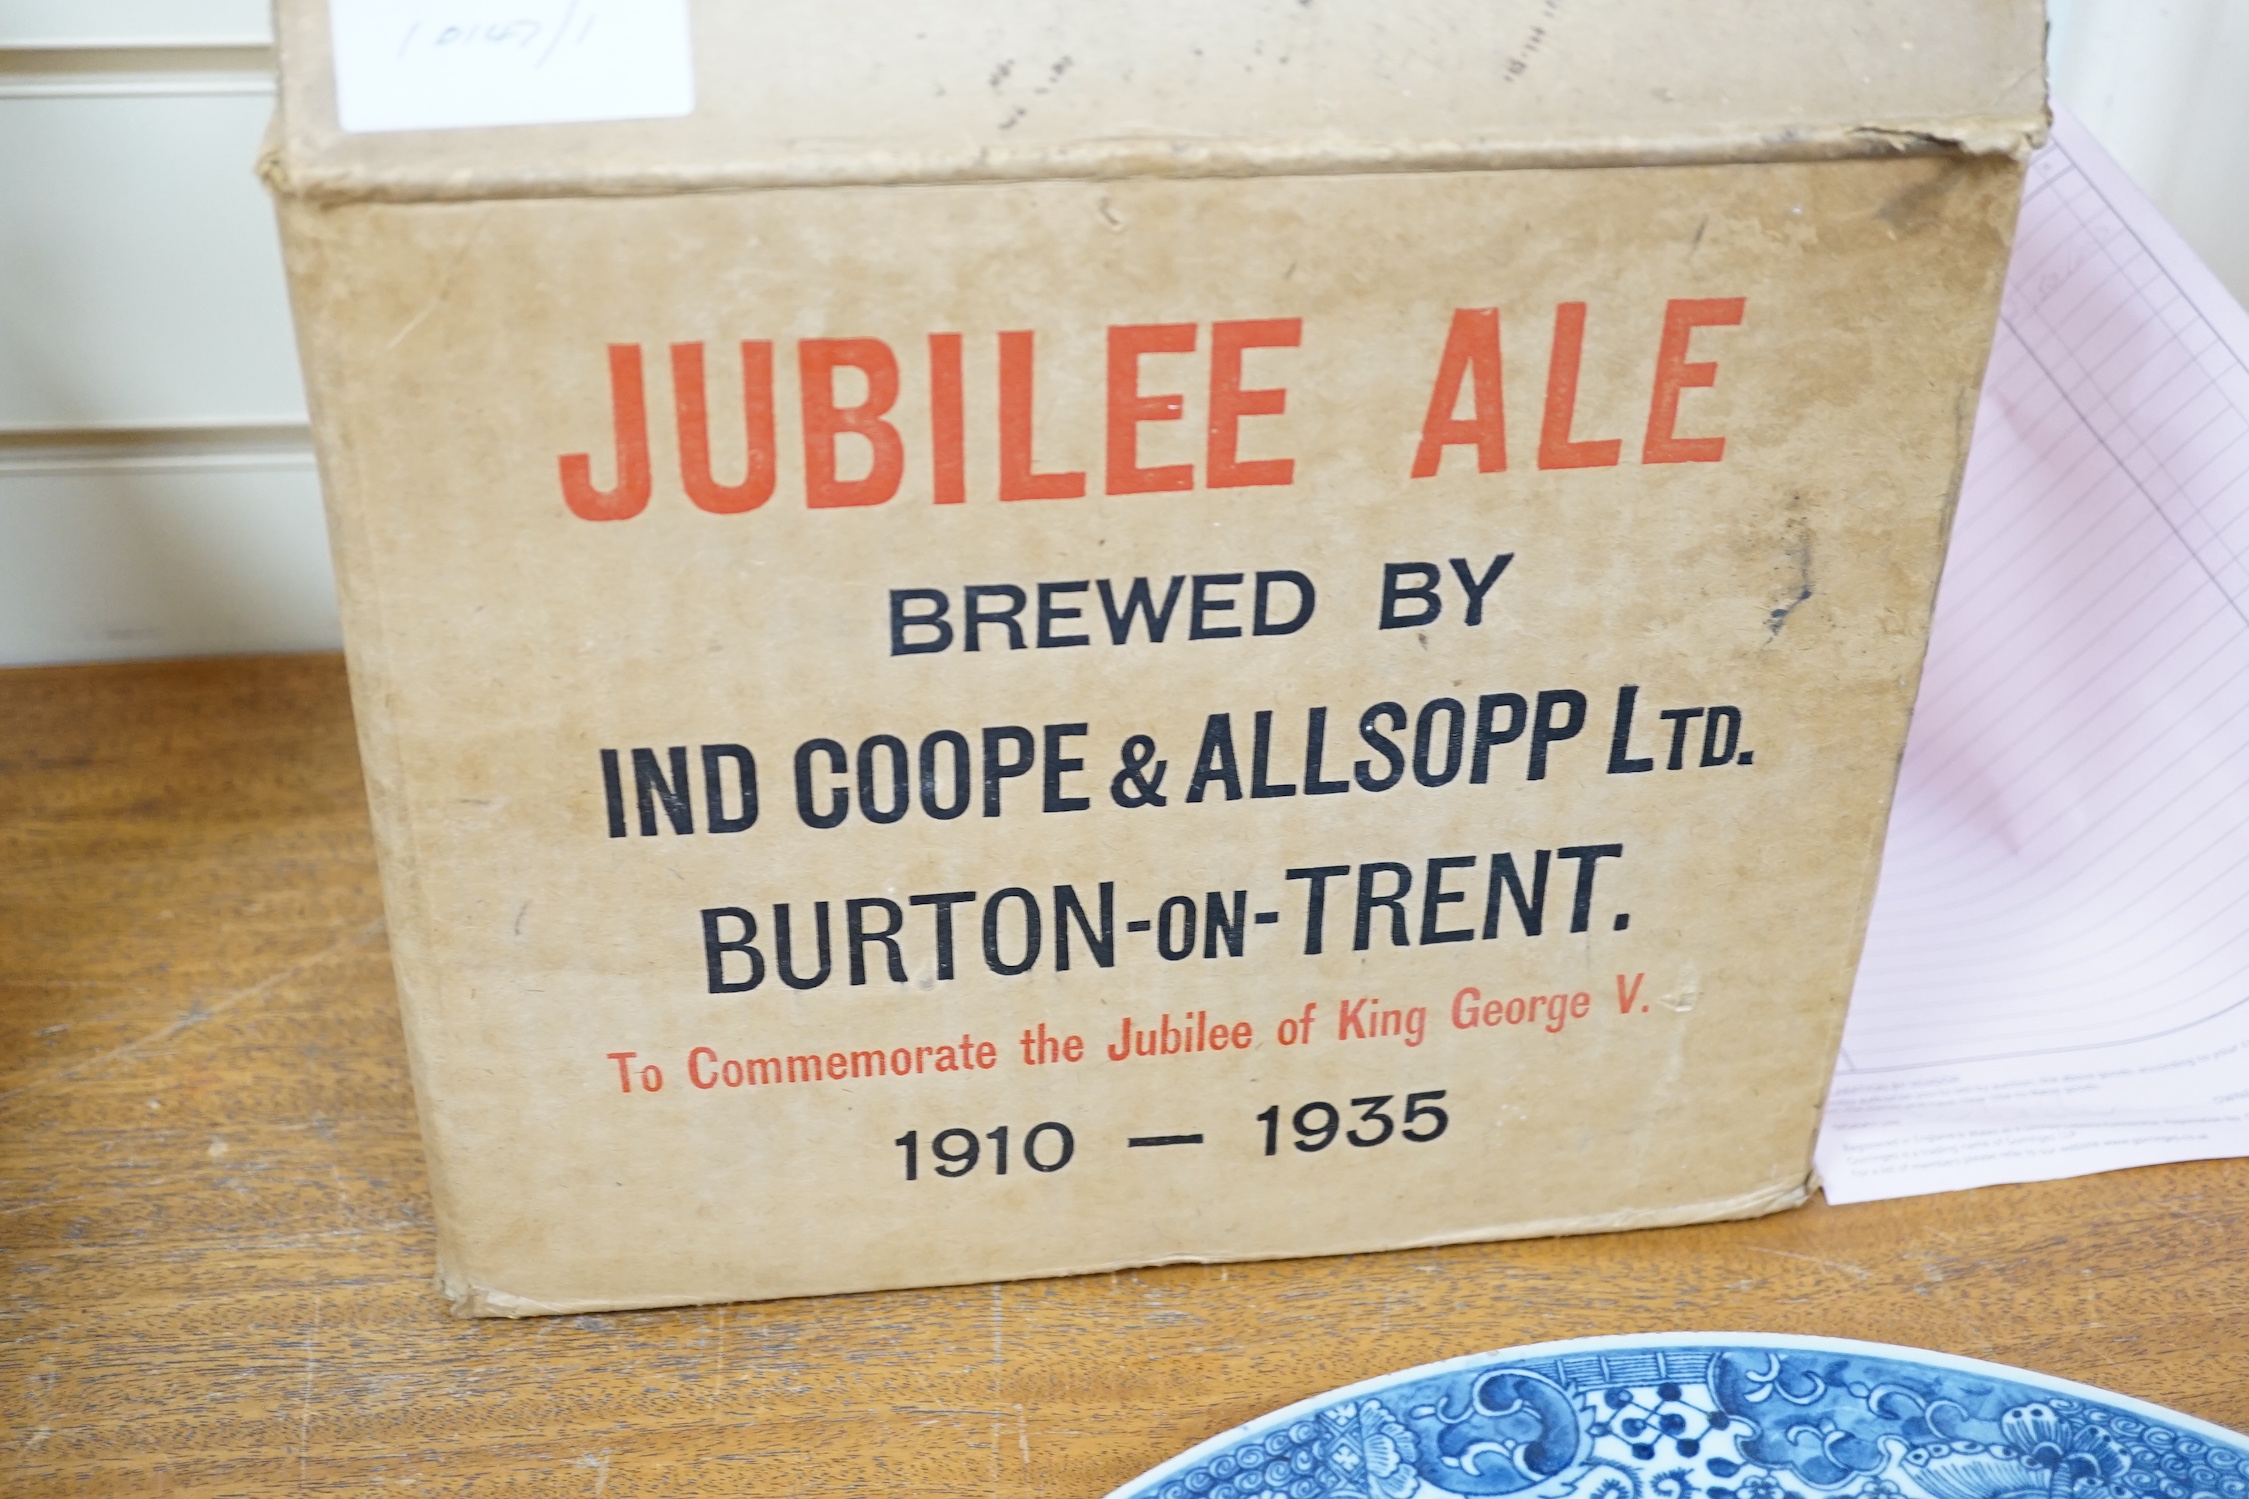 JUBILEE ALE
BREWED BY
IND COOPE & ALLSOPP LTD.
BURTON-ON-TRENT.
To Commemorate the Jubilee of King George V.
1910 — 1935